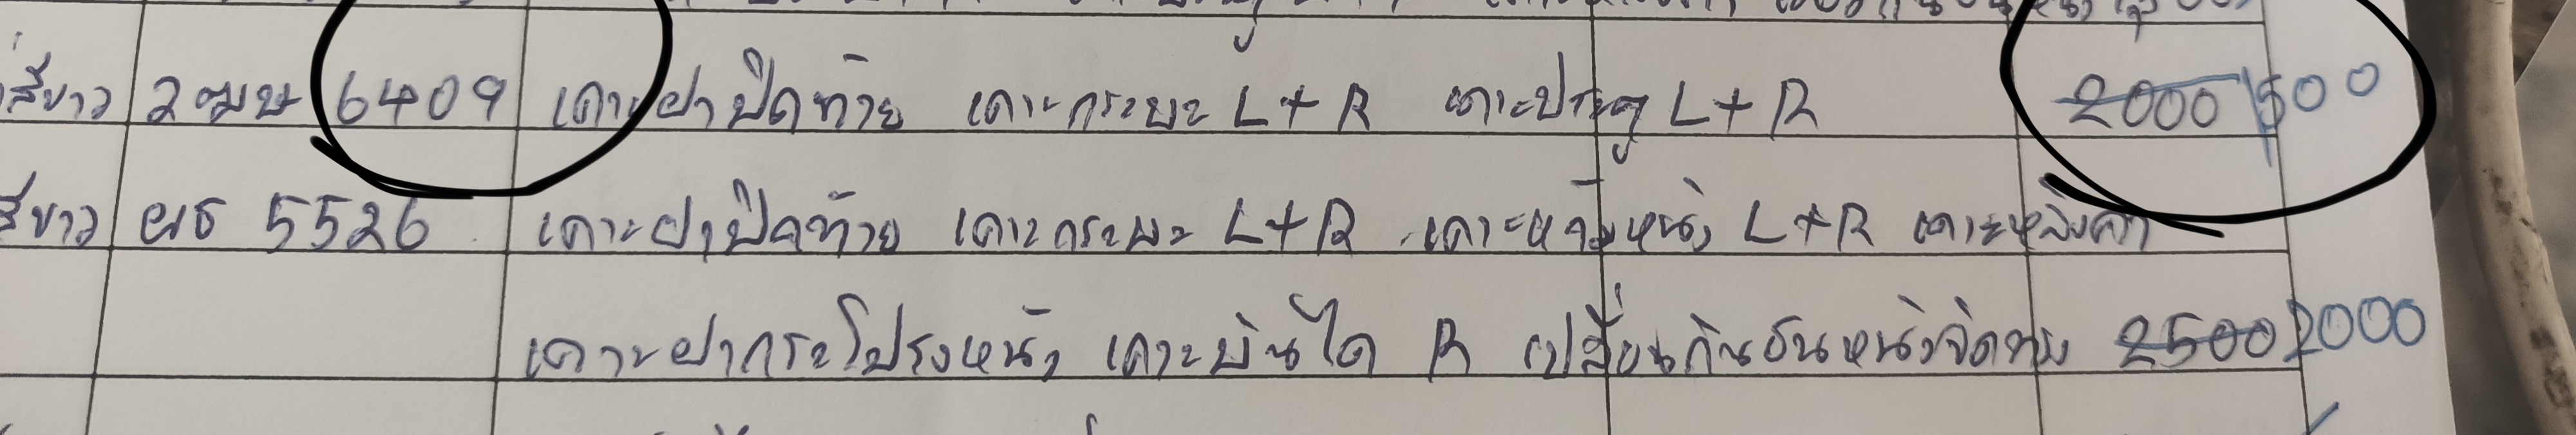 สีขาว 2ฒษ 6409 เคาะฝาปิดท้าย เคาะกระบะ L+R เคาะประตู L+R 2000 1500
สีขาว ผธ 5526 เคาะฝาปิดท้าย เคาะกระบะ L+R เคาะแก้มหน้า L+R เคาะหลังคา
เคาะฝากระโปรงหน้า เคาะบันได R เปลี่ยนกันชนหน้าจัดทรง 2500 2000